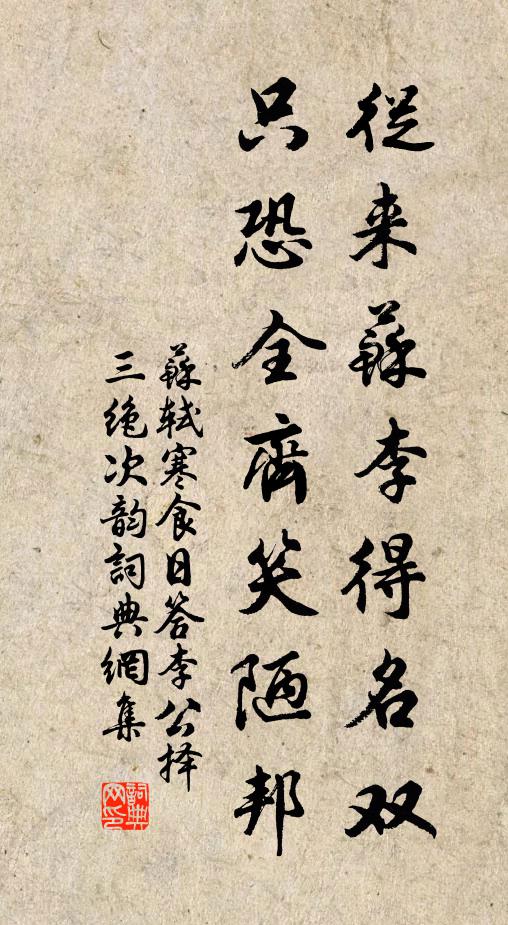 從来蘇李得名双
只恐全齊笑陋邦
蘇轼寒食日答李公择
三绝次韵詞典網集
詞典
网印